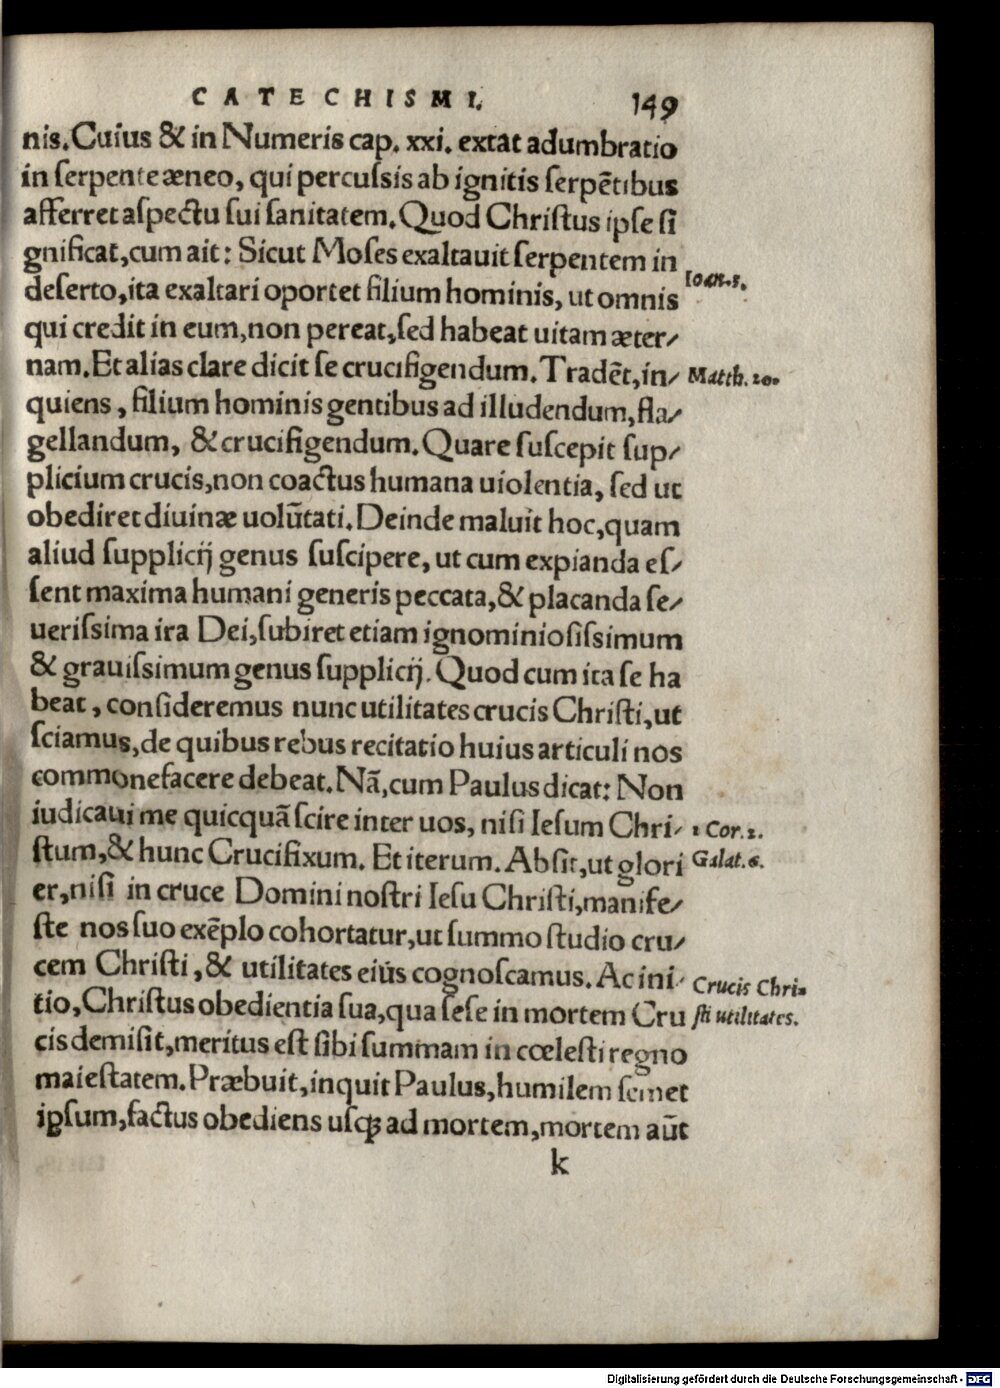 CATECHISMI. 149
nis. Cuius & in Numeris cap. xxi. extat adumbratio
in ſerpente æneo, qui percuſsis ab ignitis ſerpẽtibus
afferret aſpectu ſui ſanitatem. Quod Chriſtus ipſe ſi
gnificat, cum ait: Sicut Moſes exaltauit ſerpentem in
deſerto, ita exaltari oportet filium hominis, ut omnis
Ioan. 3.
qui credit in eum, non pereat, ſed habeat uitam æter/
nam. Et alias clare dicit ſe crucifigendum. Tradẽt, in/
Matth. 20.
quiens, filium hominis gentibus ad illudendum, fla/
gellandum, & crucifigendum. Quare ſuſcepit ſup/
plicium crucis, non coactus humana uiolentia, ſed ut
obediret diuinæ uolũtati. Deinde maluit hoc, quam
aliud ſupplicij genus ſuſcipere, ut cum expianda eſ/
ſent maxima humani generis peccata, & placanda ſe/
ueriſsima ira Dei, ſubiret etiam ignominioſiſsimum
& grauiſsimum genus ſupplicij. Quod cum ita ſe ha
beat, conſideremus nunc utilitates crucis Chriſti, ut
ſciamus, de quibus rebus recitatio huius articuli nos
commonefacere debeat. Nã, cum Paulus dicat: Non
iudicaui me quicquã ſcire inter uos, niſi Ieſum Chri/
1 Cor. 2.
ſtum, & hunc Crucifixum. Et iterum. Abſit, ut glori
Galat. 6.
er, niſi in cruce Domini noſtri Ieſu Chriſti, manife/
ſte nos ſuo exẽplo cohortatur, ut ſummo ſtudio cru/
cem Chriſti, & utilitates eius cognoſcamus. Ac ini/
Crucis Chri-
tio, Chriſtus obedientia ſua, qua ſeſe in mortem Cru
ſti utilitates.
cis demiſit, meritus eſt ſibi ſummam in cœleſti regno
maieſtatem. Præbuit, inquit Paulus, humilem ſemet
ipſum, factus obediens uſq; ad mortem, mortem aũt
k
Digitalisierung gefördert durch die Deutsche Forschungsgemeinschaft - DFG